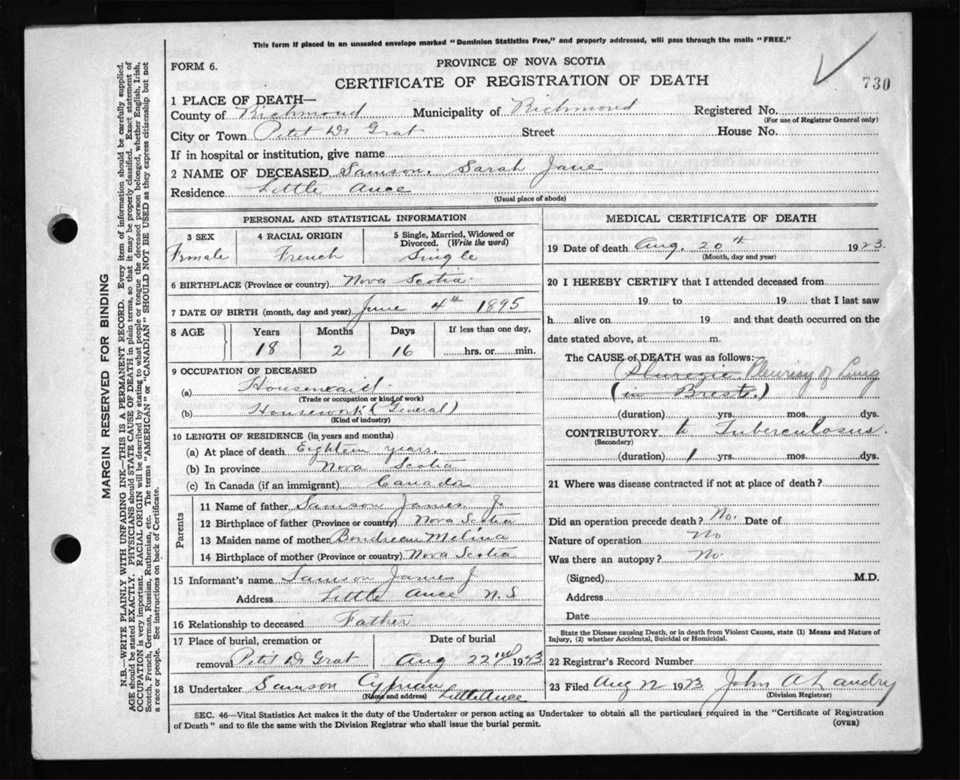 This form if placed in an unsealed envelope marked "Dominion Statistics Free," and properly addressed, will pass through the mails "FREE."
FORM 6.
PROVINCE OF NOVA SCOTIA
CERTIFICATE OF REGISTRATION OF DEATH
730
1 PLACE OF DEATH—
County of Richmond Municipality of Richmond Registered No.
(For use of Registrar General only)
City or Town Petit De Grat Street House No.
If in hospital or institution, give name
2 NAME OF DECEASED Samson, Sarah Jane
Residence Little Ance
(Usual place of abode)
PERSONAL AND STATISTICAL INFORMATION
3 SEX 4 RACIAL ORIGIN 5 Single, Married, Widowed or Divorced. (Write the word)
Female French Single
6 BIRTHPLACE (Province or country) Nova Scotia
7 DATE OF BIRTH (month, day and year) June 4th 1895
8 AGE Years Months Days If less than one day,
18 2 16 hrs. or min.
9 OCCUPATION OF DECEASED
(a) Housemaid
(Trade or occupation or kind of work)
(b) Housework (General)
(Kind of industry)
10 LENGTH OF RESIDENCE (in years and months)
(a) At place of death Eighteen years.
(b) In province Nova Scotia
(c) In Canada (if an immigrant) Canada
Parents
11 Name of father Samson James J.
12 Birthplace of father (Province or country) Nova Scotia
13 Maiden name of mother Boudreau Melina
14 Birthplace of mother (Province or country) Nova Scotia
15 Informant's name Samson James J
Address Little Ance N.S
16 Relationship to deceased Father
17 Place of burial, cremation or removal Petit De Grat
Date of burial
Aug 22nd 1923
18 Undertaker Samson Cyprian Little Ance
(Name and address)
MEDICAL CERTIFICATE OF DEATH
19 Date of death Aug. 20th 1923.
(Month, day and year)
20 I HEREBY CERTIFY that I attended deceased from
19 to 19 that I last saw
h alive on 19 and that death occurred on
date stated above, at m.
The CAUSE OF DEATH was as follows:
Pleurisy of Lung
(in Breste.)
(duration) yrs. mos. dys.
CONTRIBUTORY to Tuberculosus.
(Secondary)
(duration) 1 yrs. mos. dys.
21 Where was disease contracted if not at place of death?
Did an operation precede death? No. Date of
Nature of operation No
Was there an autopsy? No.
(Signed) M.D.
Address
Date
State the Disease causing Death, or in death from Violent Causes, state (1) Means and Nature of Injury, (2) whether Accidental, Suicidal or Homicidal.
22 Registrar's Record Number
23 Filed Aug 22 1923 John A Landry
(Division Registrar)
SEC. 46—Vital Statistics Act makes it the duty of the Undertaker or person acting as Undertaker to obtain all the particulars required in the "Certificate of Registration
of Death" and to file the same with the Division Registrar who shall issue the burial permit.
(OVER)
MARGIN RESERVED FOR BINDING
N.B.—WRITE PLAINLY WITH UNFADING INK—THIS IS A PERMANENT RECORD. Every item of information should be carefully supplied.
AGE should be stated EXACTLY. PHYSICIANS should STATE CAUSE OF DEATH in plain terms, so that it may be properly classified. Exact statement of
OCCUPATION is very important. RACIAL ORIGIN will be described by stating to what people or tongue the deceased person belonged, whether English, Irish,
Scotch, French, German, Russian, Ruthenian, etc. The terms "AMERICAN" or "CANADIAN" SHOULD NOT BE USED as they express citizenship but not
a race or people. See instructions on back of Certificate.